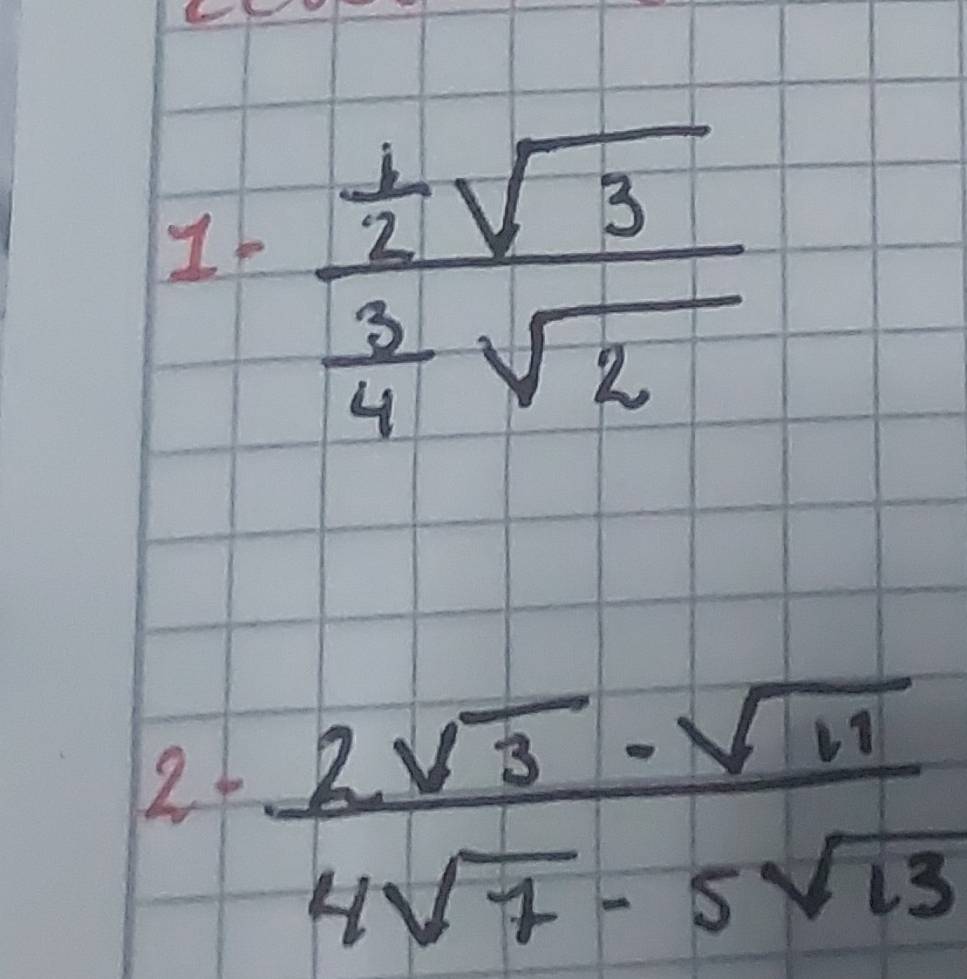 1- \frac{\frac{1}{2}\sqrt{3}}{\frac{3}{4}\sqrt{2}}
2- \frac{2\sqrt{3} - \sqrt{11}}{4\sqrt{7} - 5\sqrt{13}}